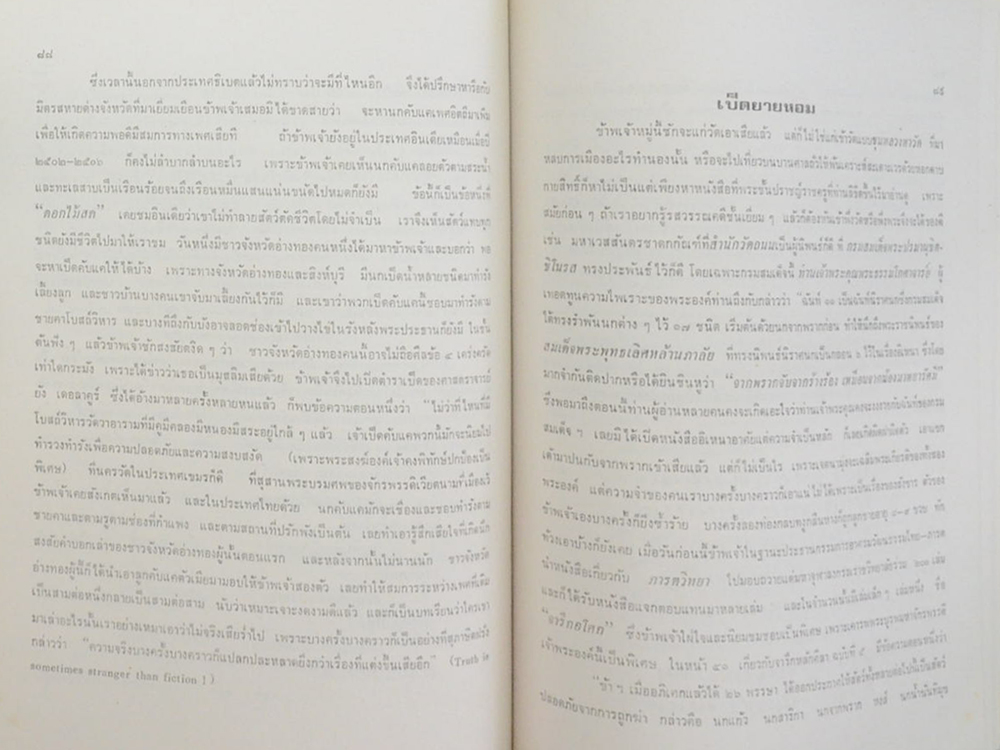 ๘๘
ซึ่งเวลานี้นอกจากประเทศธิเบตแล้วไม่ทราบว่าจะมีที่ไหนอีก จึงได้ปรึกษาหารือกับ
มิตรสหายต่างจังหวัดที่มาเยี่ยมเยือนข้าพเจ้าเสมอมิได้ขาดสายว่า จะหานกคับแคเพศอิตถีมาเพิ่ม
เพื่อให้เกิดความพอดีมีสมการทางเพศเสียที ถ้าข้าพเจ้ายังอยู่ในประเทศอินเดียเหมือนเมื่อปี
๒๕๐๒-๒๕๐๖ ก็คงไม่ลำบากลำบนอะไร เพราะข้าพเจ้าเคยเห็นนกคับแคลอยตัวตามสระน้ำ
และทะเลสาบเป็นเรือนร้อยจนถึงเรือนหมื่นแสนแน่นขนัดไปหมดก็ยังมี ข้อนี้ก็เป็นข้อหนึ่งที่
"ดอกไม้สด" เคยชมอินเดียว่าเขาไม่ทำลายสัตว์ตัดชีวิตโดยไม่จำเป็น เราจึงเห็นสัตว์แทบทุก
ชนิดยังมีชีวิตไปมาให้เราชม วันหนึ่งมีชาวจังหวัดอ่างทองคนหนึ่งได้มาหาข้าพเจ้าและบอกว่า พอ
จะหาเป็ดคับแคให้ได้บ้าง เพราะทางจังหวัดอ่างทองและสิงห์บุรี มีนกเป็ดน้ำหลายชนิดมาทำรัง
เลี้ยงลูก และชาวบ้านบางคนเขาจับมาเลี้ยงกันไว้ก็มี และเขาว่าพวกเป็ดคับแคนี้ชอบมาทำรังตาม
ชายคาโบสถ์วิหาร และบางทีถึงกับบังอาจลอดช่องเข้าไปวางไข่ในรังหลังพระประธานก็ยังมี ในขั้น
ต้นฟัง ๆ แล้วข้าพเจ้าชักสงสัยตงิด ๆ ว่า ชาวจังหวัดอ่างทองคนนี้อาจไม่ถือศีลข้อ ๔ เคร่งครัด
เท่าใดกระมัง เพราะได้ข่าวว่าเธอเป็นมุสลิมเสียด้วย ข้าพเจ้าจึงไปเปิดตำราเป็ดของศาสตราจารย์
ยัง เดอลาคูร์ ซึ่งได้อ้างมาหลายครั้งหลายหนแล้ว ก็พบข้อความตอนหนึ่งว่า "ไม่ว่าที่ไหนที่มี
โบสถ์วิหารวัดวาอารามที่มีคูมีคลองมีหนองมีสระอยู่ใกล้ ๆ แล้ว เจ้าเป็ดคับแคพวกนี้มักจะนิยมไป
ทำรวงทำรังเพื่อความปลอดภัยและความสงบสงัด (เพราะพระสงฆ์องค์เจ้าคงพิทักษ์ปกป้องเป็น
พิเศษ) ที่นครวัดในประเทศเขมรก็ดี ที่สุสานพระบรมศพของจักรพรรดิเวียดนามที่เมืองเว้
ข้าพเจ้าเคยสังเกตเห็นมาแล้ว และในประเทศไทยด้วย นกคับแคมักจะเชื่องและชอบทำรังตาม
ชายคาและตามรูตามช่องที่กำแพง และตามสถานที่ปรักพังเป็นต้น เลยทำเอารู้สึกเสียใจที่เกิดนึก
สงสัยคำบอกเล่าของชาวจังหวัดอ่างทองผู้นั้นตอนแรก และหลังจากนั้นไม่นานนัก ชาวจังหวัด
อ่างทองผู้นี้ก็ได้นำเอาลูกคับแคตัวเมียมามอบให้ข้าพเจ้าสองตัว เลยทำให้สมการระหว่างเพศที่เดิม
เป็นสามต่อหนึ่งกลายเป็นสามต่อสาม นับว่าเหมาะเจาะงดงามดีแล้ว และก็เป็นบทเรียนว่าใครเขา
มาเล่าอะไรนั้นเราอย่างเหมาเอาว่าไม่จริงเสียร่ำไป เพราะบางครั้งบางคราวก็เป็นอย่างที่สุภาษิตฝรั่ง
กล่าวว่า "ความจริงบางครั้งบางคราวก็แปลกประหลาดยิ่งกว่าเรื่องที่แต่งขึ้นเสียอีก" (Truth is
sometimes stranger than fiction !)
๘๙
เป็ดยายหอม
ข้าพเจ้าหมู่นี้ชักจะแก่วัดเอาเสียแล้ว แต่ก็ไม่ใช่แก่เข้าวัดแบบ
หลบการเมืองอะไรทำนองนั้น หรือจะไปเที่ยวบนบานศาลกล่าวให้พ้นเคราะห์
กายสิทธิ์ก็หาไม่เป็นแต่เพียงหาหนังสือที่พระชั้นปราชญ์ราชครูที่ท่านลิขิตขึ้นไว้มาอ่านดู เพราะ
สมัยก่อน ๆ ถ้าเราอยากรู้รสวรรณคดีชั้นเยี่ยม ๆ แล้วก็ต้องหันเข้าหาวัด
เช่น มหาเวสสันดรชาดกกัณฑ์ที่สำนักวัดถนนเป็นผู้นิพนธ์ก็ดี ที่ กรมสมเด็จพระปรมานุชิต-
ชิโนรส ทรงประพันธ์ไว้ก็ดี โดยเฉพาะกรมสมเด็จนี้ ท่านเจ้าพระคุณพระธรรมโกศาจารย์ ผู้
เทอดทูนความไพเราะของพระองค์ท่านถึงกับกล่าวว่า ฉันท์ ๑๑ เป็นฉันท์นิราศ
ได้ทรงรำพันนกต่าง ๆ ไว้ ๑๗ ชนิด เริ่มต้นด้วยนกจากพรากก่อน ทำให้นึกถึงพระราชนิพนธ์ของ
สมเด็จพระพุทธเลิศหล้านภาลัย ที่ทรงนิพนธ์นิราศนกเป็นกลอน ๖ ไว้ในเรื่องอิเหนา ซึ่งโดย
มากจำกันติดปากหรือได้ยินชินหูว่า "จากพรากจับจากจำนรรจา เหมือนจากนางสการะวาตี"
ซึ่งพอมาถึงตอนนี้ท่านผู้อ่านหลายคนคงจะเกิดเอะใจว่าท่านเจ้าพระคุณ
สมเด็จ ฯ เลยมิได้เปิดหนังสืออิเหนาอาศัยแต่ความจำเป็นหลัก
พระองค์ แต่ความจำของคนเราบางครั้งบางคราวก็เอาแน่ไม่ได้เพราะเป็นเรื่องของสังขาร ตัวของ
ข้าพเจ้าเองบางครั้งก็ยิ่งซ้ำร้าย บางครั้งลองท่องกลบทกุ
ท้วงเอาบ้างก็ยังเคย เมื่อวันก่อนนี้ข้าพเจ้าในฐานะประธานกรรมการอาศรมวัฒนธรรมไทย-ภารต
นำหนังสือเกี่ยวกับ ภารตวิทยา ไปมอบถวายแด่มหาจุฬาลงกรณราชวิทยาลัยรวม ๒๐๐ เล่ม
และก็ได้รับหนังสือแจกตอบแทนมาหลายเล่ม และในจำนวนนั้นมีเล่มเล็ก ๆ เล่มหนึ่ง ชื่อ
"จารึกอโศก" ซึ่งข้าพเจ้าใฝ่ใจและนิยมชมชอบเป็นพิเศษ เพราะเคารพพระบูรพมหาจักรพรรดิ
เจ้าพระองค์นี้เป็นพิเศษ ในหน้า ๔๐ เกี่ยวกับจารึกหลักศิลา ฉบับที่ ๕ มีข้อความตอนหนึ่งว่า
"ข้า ฯ เมื่ออภิเษกแล้วได้ ๒๖ พรรษา ได้ออกประกาศให้สัตว์ทั้งหลายต่อไปนี้เป็นสัตว์
ปลอดภัยจากการถูกฆ่า กล่าวคือ นกแก้ว นกสาริกา นกจากพราก หงส์ นกน้ำนันทิมุข